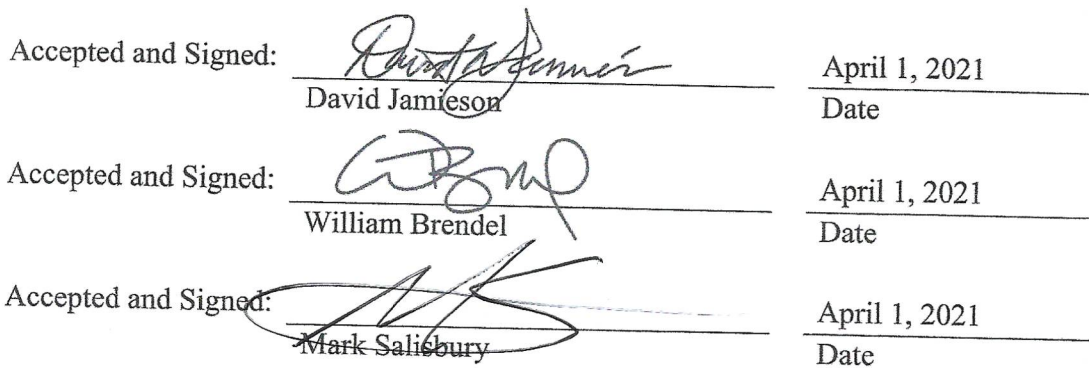 Accepted and Signed: April 1, 2021
David Jamieson Date
Accepted and Signed: April 1, 2021
William Brendel Date
Accepted and Signed: April 1, 2021
Mark Salisbury Date